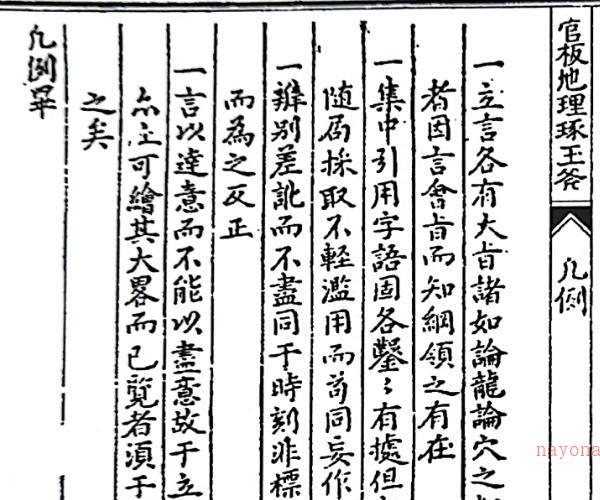 官板地理琢玉斧
凡例
一立言各有大旨諸如論龍論穴之
者因言會旨而知綱領之有在
一集中引用字語固各鑿鑿有據但
隨局採取不輕濫用而苟同妄作
一辨别差訛而不盡同于時刻非標
而為之反正
一言以達意而不能以盡意故于立
亦止可繪其大畧而已覧者須于
之矣
凡例畢
nayona